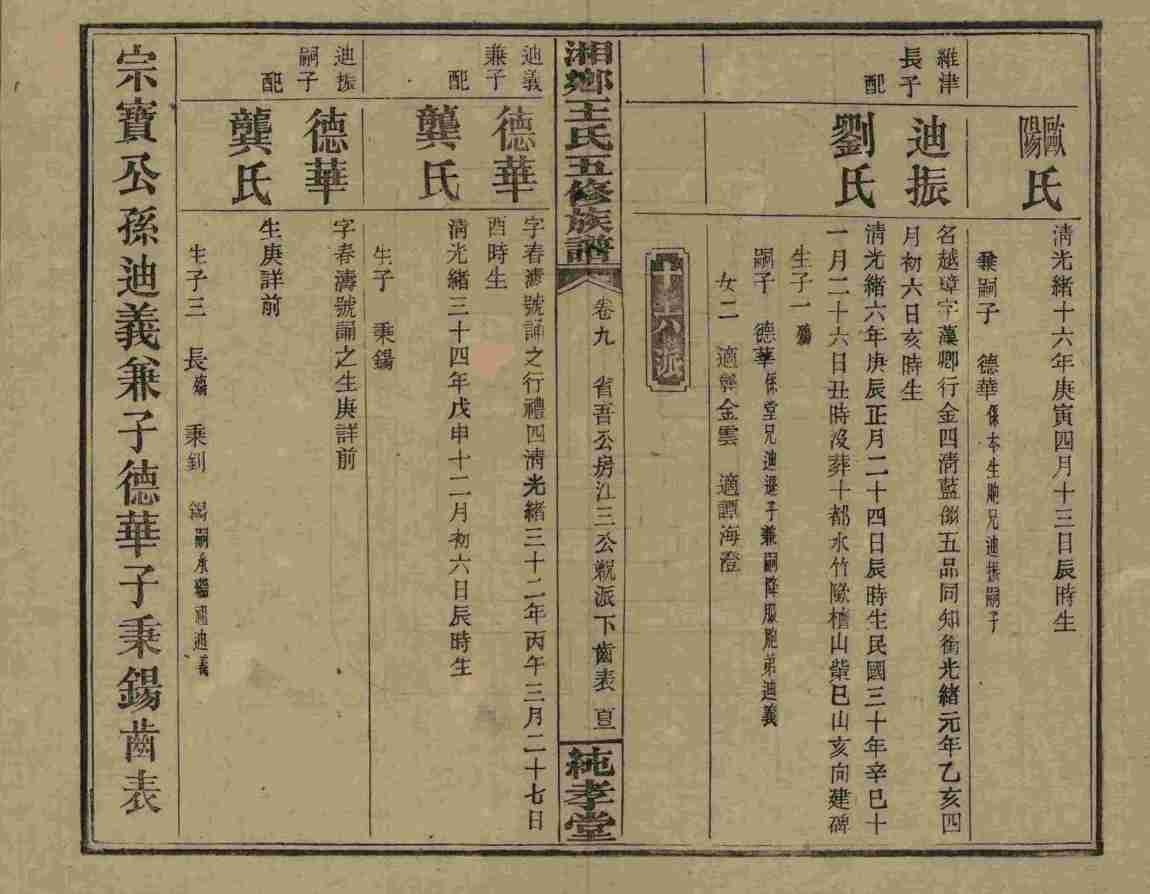 歐陽氏
清光緒十六年庚寅四月十三日辰時生
兼嗣子 德華 係本生胞兄迪振嗣子
維津長子
迪振
名越璋字漢卿行金四清藍翎五品同知銜光緒元年乙亥四
月初六日亥時生
配
劉氏
清光緒六年庚辰正月二十四日辰時生民國三十年辛巳十
一月二十六日丑時歿葬十都水竹歐檀山巳山亥向建碑
生子一 殤
嗣子 德華 係堂兄迪選子兼嗣降服胞弟迪義
女二 適金雲 適譚海澄
十六派
湘鄉王氏五修族譜
卷九 省吾公房江三公親派下齒表
純孝堂
迪義兼子
德華
字春濤號誦之行禮四清光緒三十二年丙午三月二十七日
酉時生
配
龔氏
清光緒三十四年戊申十二月初六日辰時生
生子 秉錫
迪振嗣子
德華
字春濤號誦之生庚詳前
配
龔氏
生庚詳前
生子三 長殤 秉釗 錫嗣承繼祖迪義
宗寶公孫迪義兼子德華子秉錫齒表